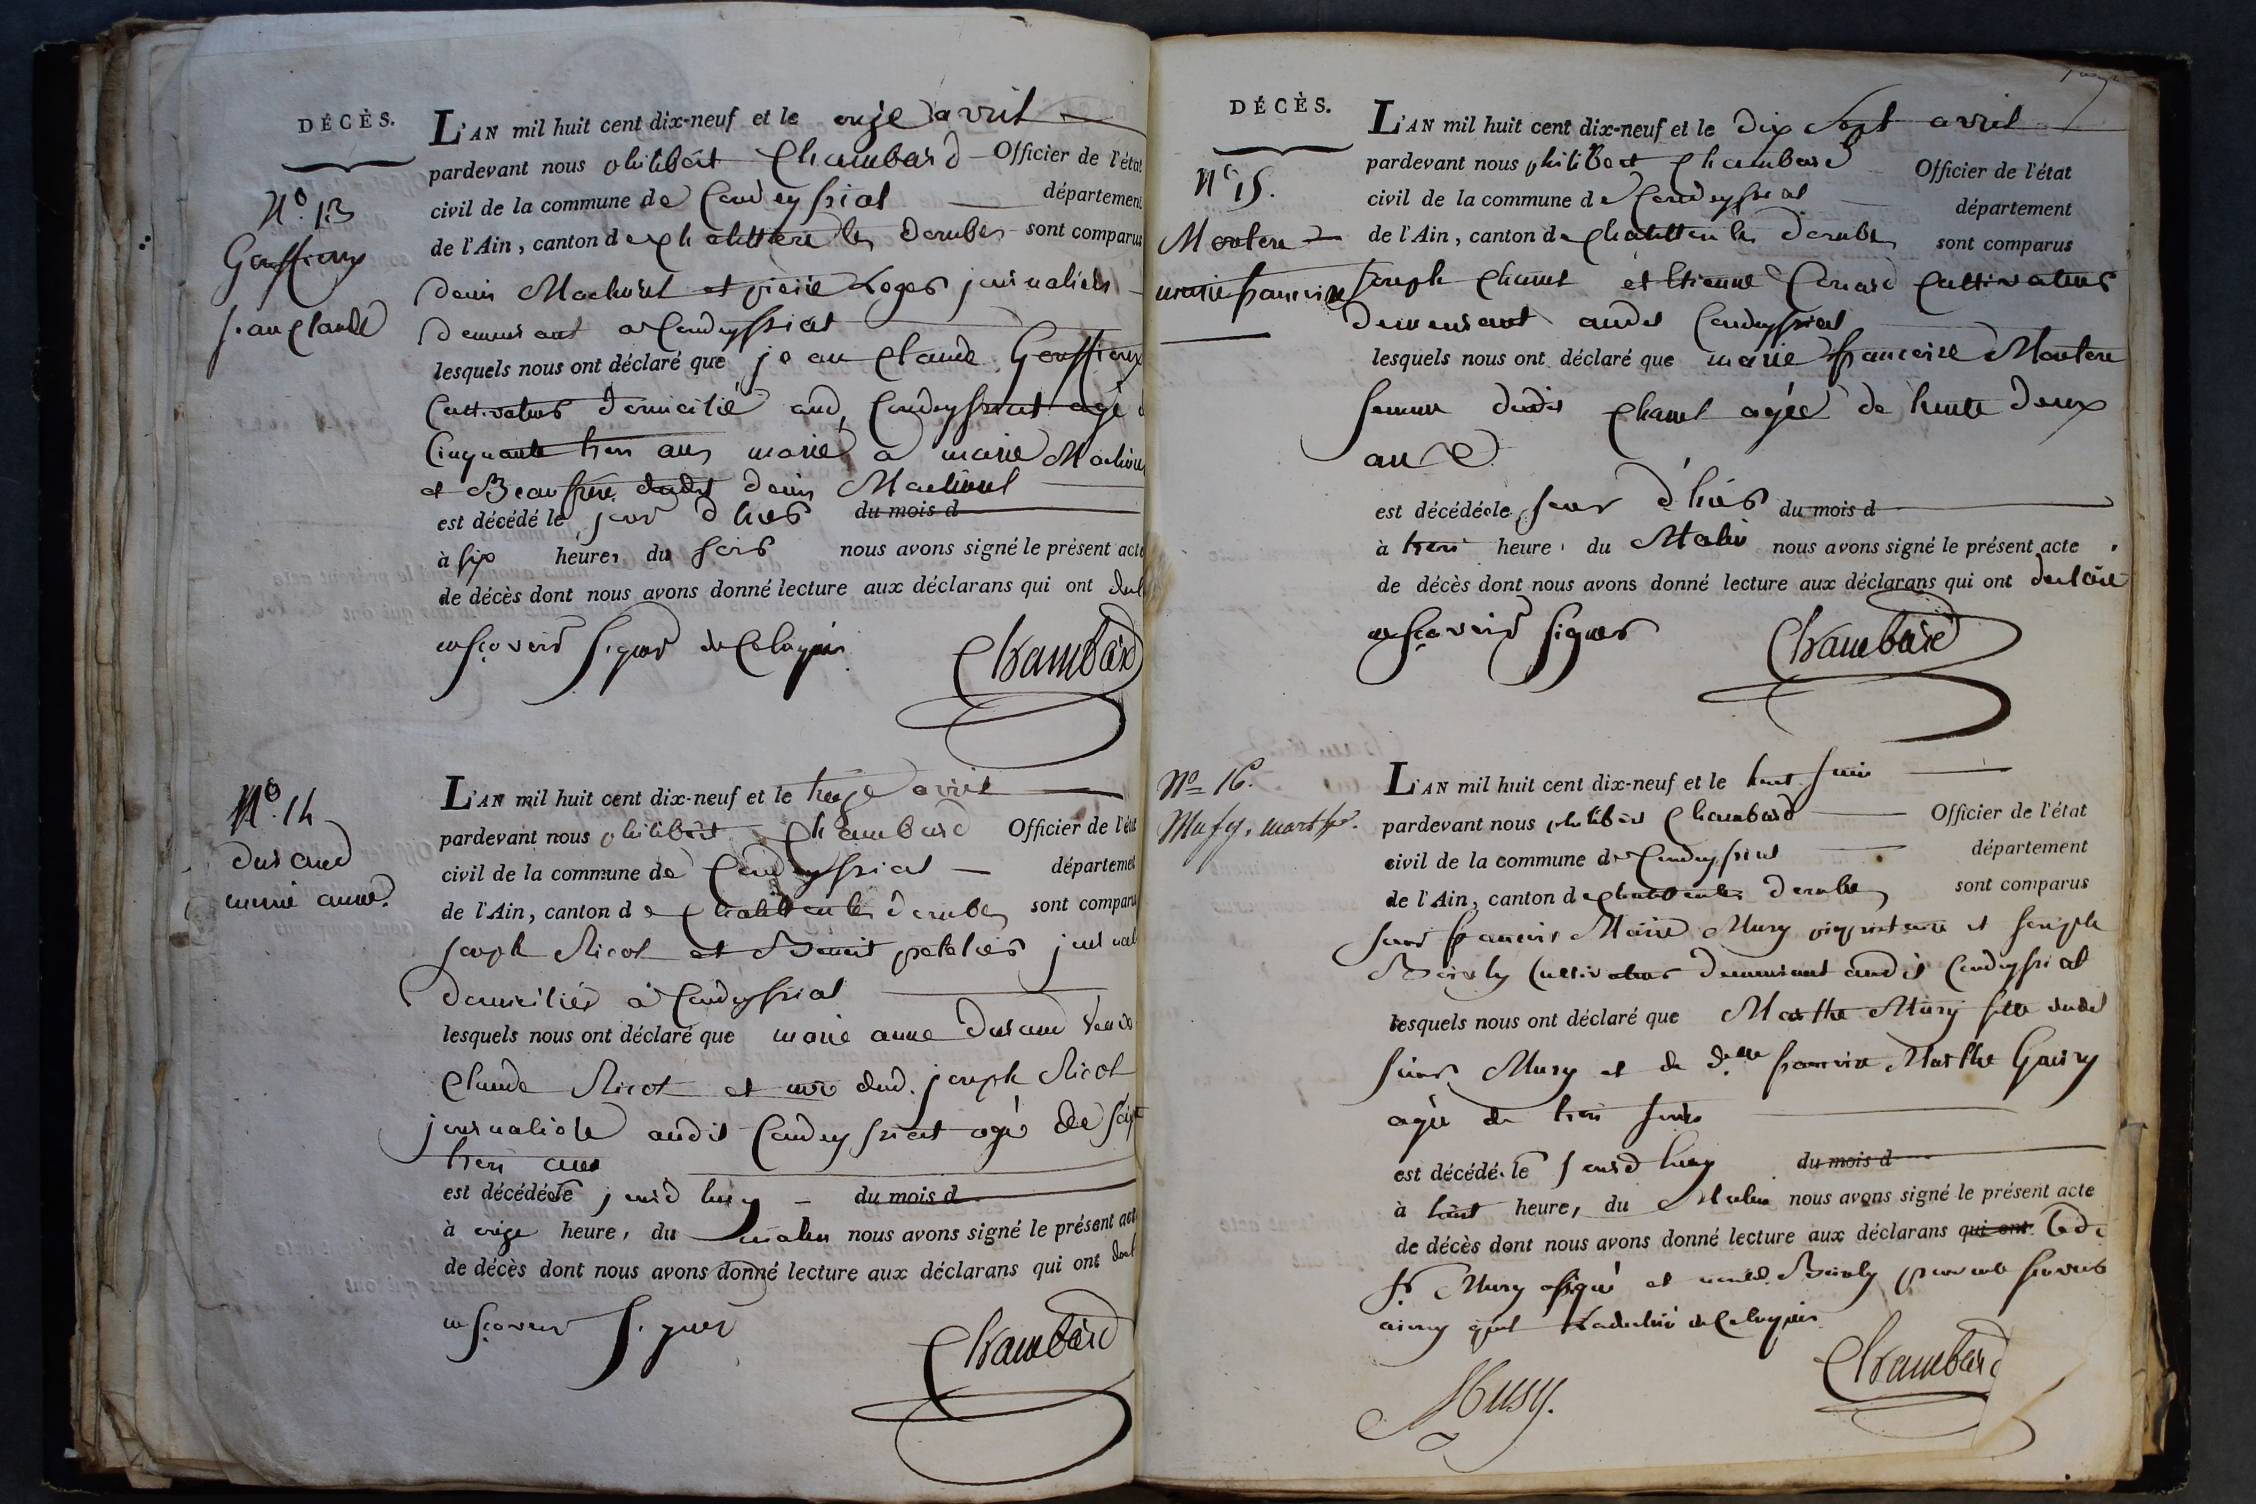 DÉCÈS.
N.º 13
Gouffroux
jean Claude
L'AN mil huit cent dix-neuf et le onze avril
pardevant nous philibert Chambard Officier de l'état
civil de la commune de Condeyssiat département
de l'Ain, canton de Chatillon les dombes sont comparus
denis et pierre journaliers
demeurant à Condeyssiat
lesquels nous ont déclaré que jean Claude Gouffroux
Cultivateur domicilié aud. Condeyssiat agé d
Cinquante trois ans marié a marie
et Beaufrere dudit denis
est décédé le jour d'hier du mois d
à six heures du soir nous avons signé le présent acte
de décès dont nous avons donné lecture aux déclarans qui ont
ne sçavoir signer de Ce requis
Chambard
N.º 14
durand
marie anne.
L'AN mil huit cent dix-neuf et le treize avril
pardevant nous philibert Chambard Officier de l'état
civil de la commune de Condeyssiat département
de l'Ain, canton de Chatillon les dombes sont comparus
joseph Nicot et Benoit
domiciliés à Condeyssiat
lesquels nous ont déclaré que marie anne durand
Claude Nicot et dud. joseph Nicot
journaliere audit Condeyssiat agée de
trois ans
est décédée le jourd'huy du mois d
à onze heures du matin nous avons signé le présent acte
de décès dont nous avons donné lecture aux déclarans qui ont
ne sçavoir signer
Chambard
DÉCÈS.
N.º 15.
Montere
marie francoise
L'AN mil huit cent dix-neuf et le dix Sept avril
pardevant nous philibert Chambard Officier de l'état
civil de la commune de Condeyssiat département
de l'Ain, canton de Chatillon les dombes sont comparus
joseph Chanel et Etienne Cultivateurs
demeurant audit Condeyssiat
lesquels nous ont déclaré que marie francoise Montere
femme dudit Chanel agée de trente deux
ans
est décédée le jour d'hier du mois d
à trois heures du Matin nous avons signé le présent acte
de décès dont nous avons donné lecture aux déclarans qui ont declaré
ne sçavoir signer
Chambard
Nº 16.
Musy, marthe.
L'AN mil huit cent dix-neuf et le huit juin
pardevant nous philibert Chambard Officier de l'état
civil de la commune de Condeyssiat département
de l'Ain, canton de Chatillon les dombes sont comparus
sieur francois Marie Musy proprietaire et joseph
Cultivateur demeurant audit Condeyssiat
lesquels nous ont déclaré que Marthe Musy fille dudit
sieur Musy et de d.lle francoise Marthe
agée de trois jours
est décédée le jourd'huy du mois d
à huit heures du Matin nous avons signé le présent acte
de décès dont nous avons donné lecture aux déclarans qui ont
Sr Musy a signé et pour ne sçavoir
ainsy qu'il de Ce requis
Musy.
Chambard